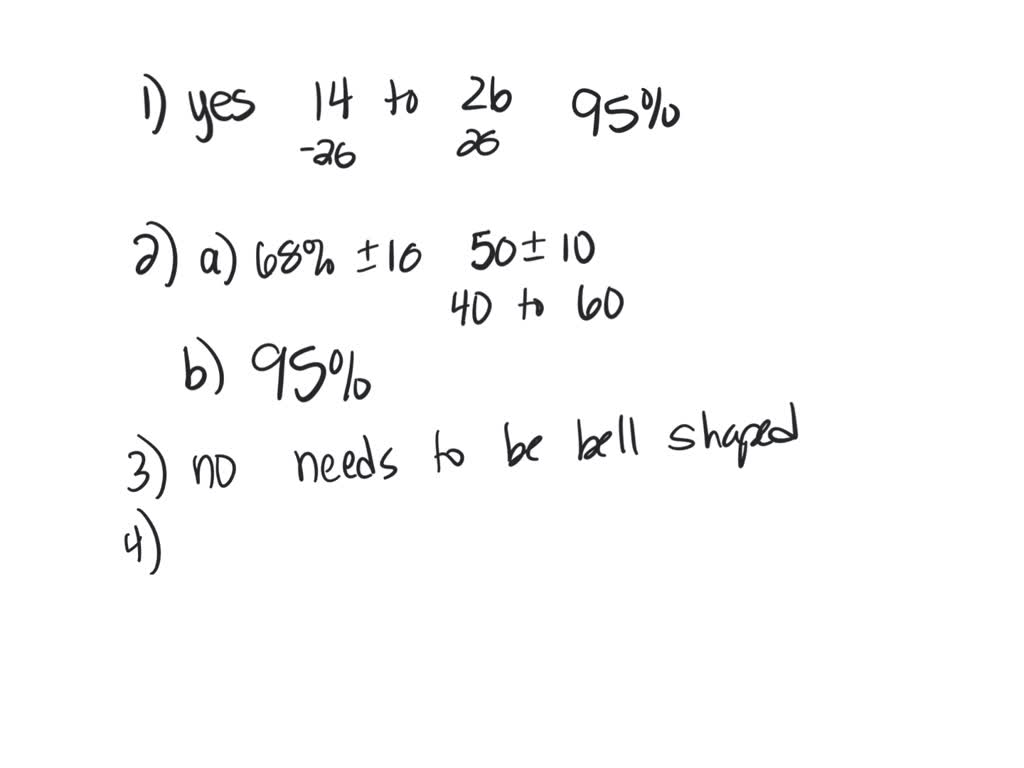 1) yes 14 to 26 95%
-26 26
2) a) 68% ±10 50±10
40 to 60
b) 95%
3) no needs to be bell shaped
4)